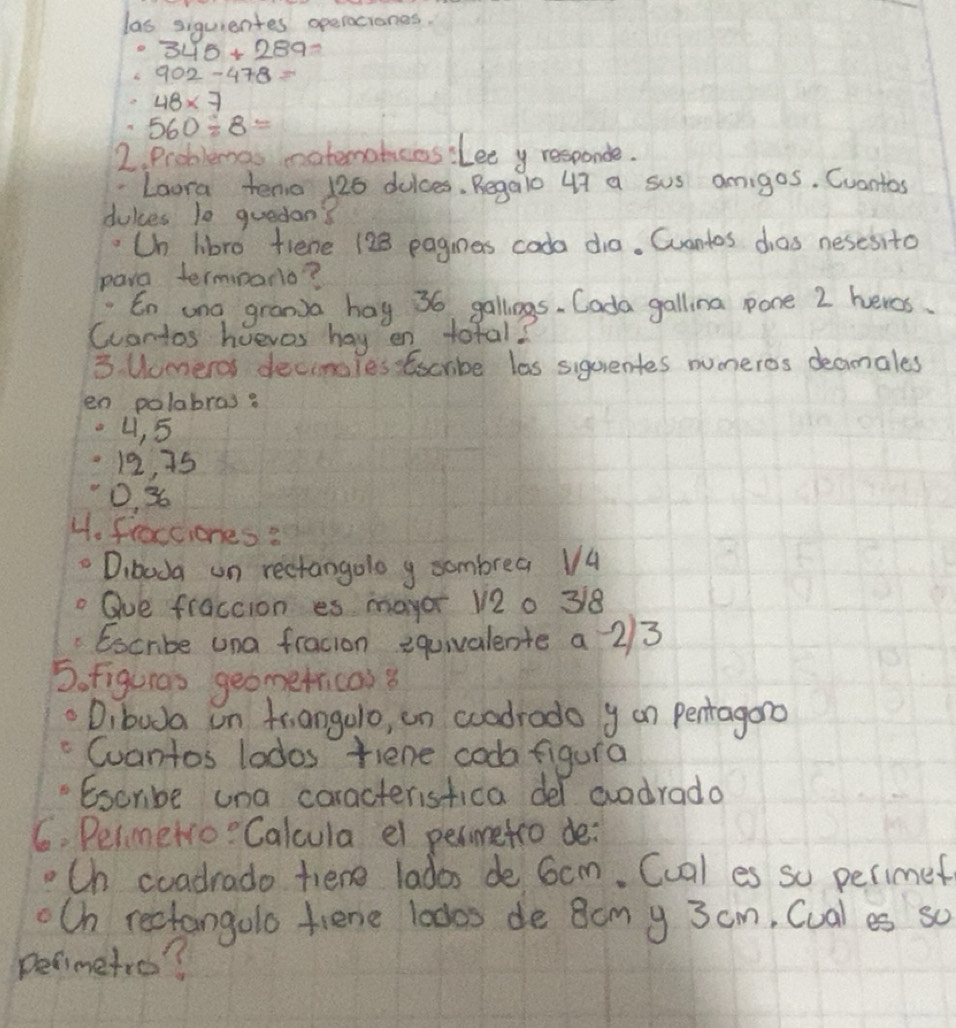 las siguientes operaciones.
• 345 + 289=
• 902 - 478 =
• 48 x 7
• 560 ÷ 8 =
2. Problemas matematicos: Lee y responde.
- Laura tenia 125 dulces. Regalo 47 a sus amigos. Cuantos
dulces le quedan?
• Un libro tiene 128 paginas cada dia. Cuantos dias nesesito
para terminarlo?
• En una granja hay 36 gallinas. Cada gallina pone 2 huevos.
Cuantos huevos hay en total?
3. Numeros decimales: Escribe las siguientes numeros decimales
en palabras:
• 4,5
• 12,75
• 0,36
4. fracciones:
• Dibuja un rectangulo y sombrea 1/4
• Que fraccion es mayor 1/2 o 3/8
• Escribe una fracion equivalente a 2/3
5. figuras geometricas:
• Dibuja un triangulo, un cuadrado y un pentagono
• Cuantos lados tiene cada figura
• Escribe una caracteristica del cuadrado
6. Perimetro: Calcula el perimetro de:
• Un cuadrado tiene lados de 6cm. Cual es su perimet
• Un rectangulo tiene lados de 8cm y 3cm. Cual es su
perimetro?